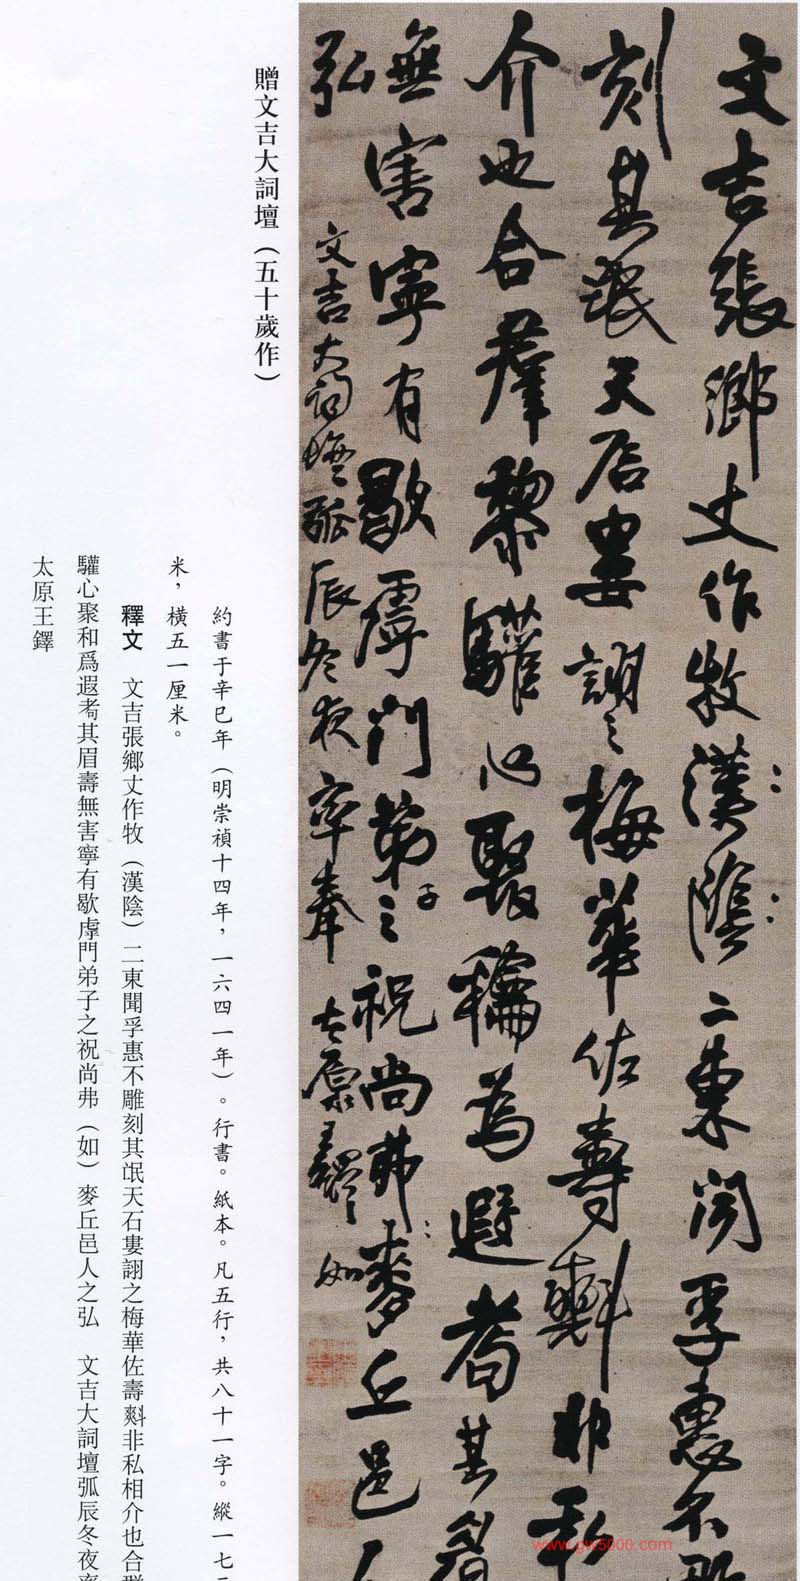 文吉張鄉丈作牧漢陰二東聞孚惠不
刻其氓天石婁詡之梅華佐壽㪺非私
介也合羣黎驩心聚龢為遐耇其眉
無害寧有歇虖門弟子之祝尚弗麥丘邑人
弘 文吉大詞壇弧辰冬夜率奉 太原王鐸 如
贈文吉大詞壇（五十歲作）
約書于辛巳年（明崇禎十四年，一六四一年）。行書。紙本。凡五行，共八十一字。縱一七
米，橫五一厘米。
釋文 文吉張鄉丈作牧（漢陰）二東聞孚惠不雕刻其氓天石婁詡之梅華佐壽㪺非私相介也合
驩心聚和爲遐耇其眉壽無害寧有歇虖門弟子之祝尚弗（如）麥丘邑人之弘 文吉大詞壇弧辰冬夜
太原王鐸